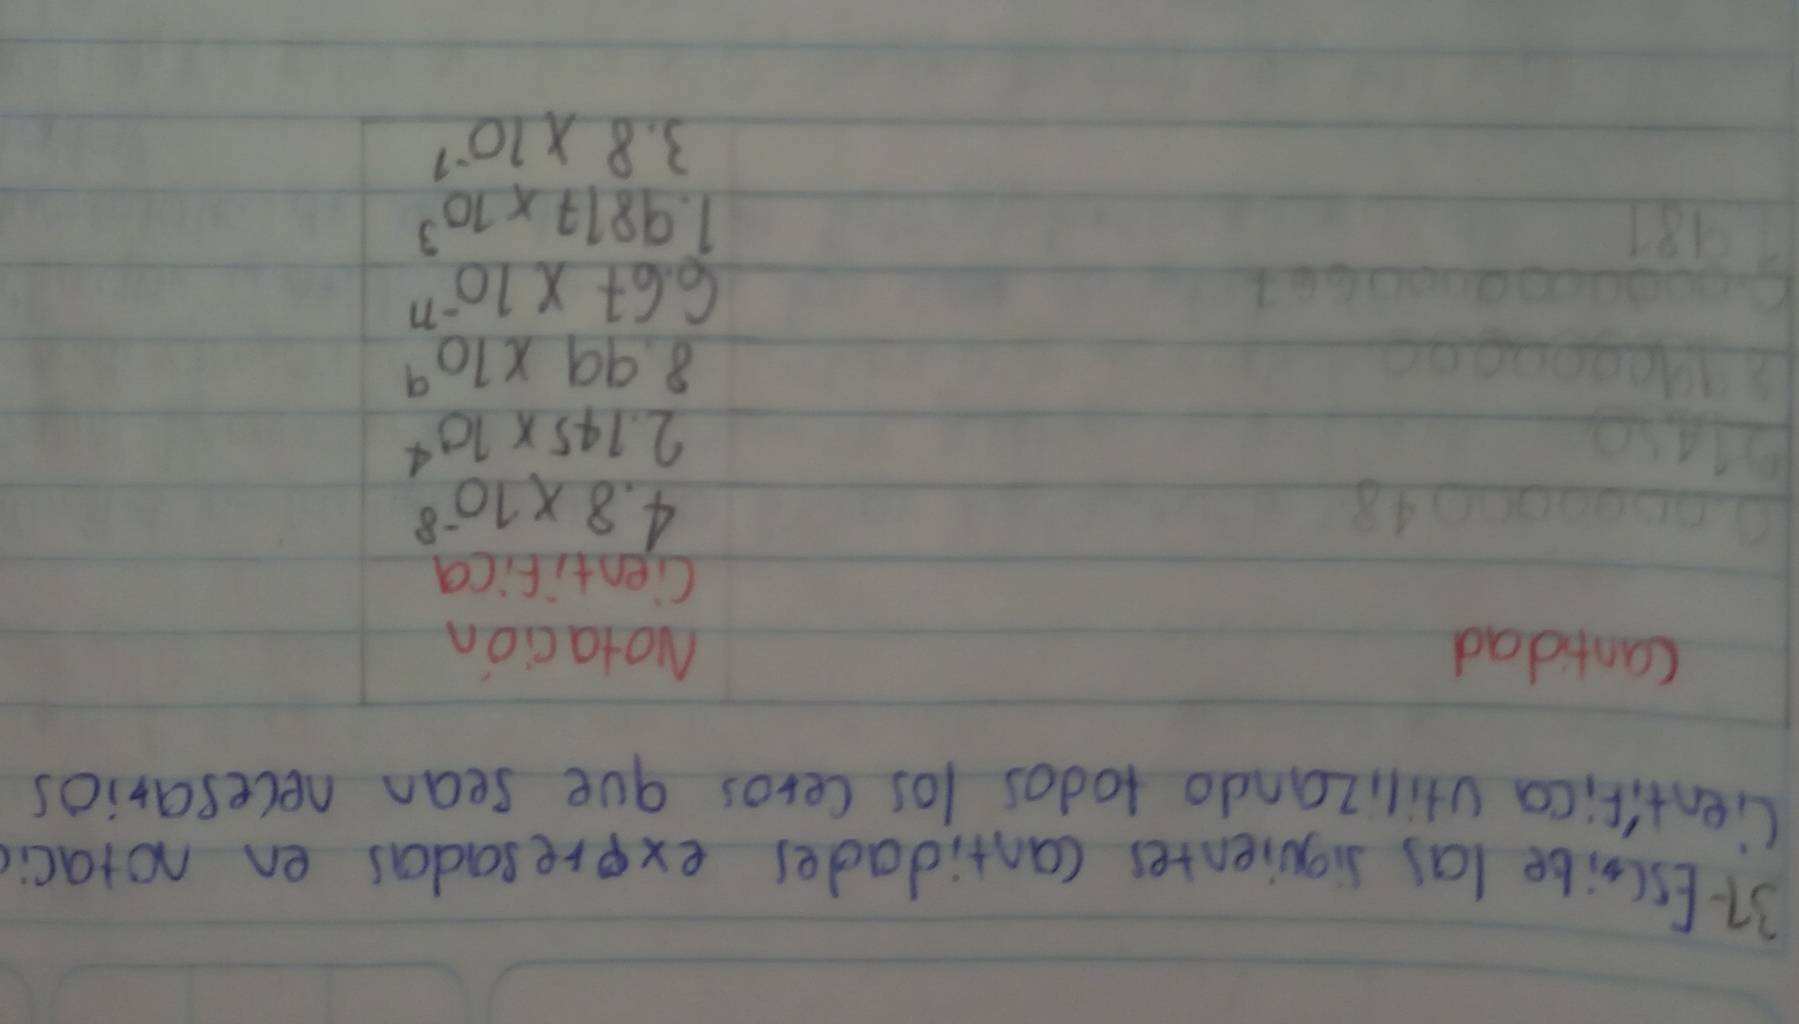 31-Escribe las siguientes cantidades expresadas en notació
Científica utilizando todos los ceros que sean necesarios
Cantidad Notación
Científica
0.000000048 4.8 x 10⁻⁸
21450 2.145 x 10⁴
8.99 x 10⁹
0.0000000000667 6.67 x 10⁻¹¹
1.9817 x 10³
3.8 x 10⁻¹